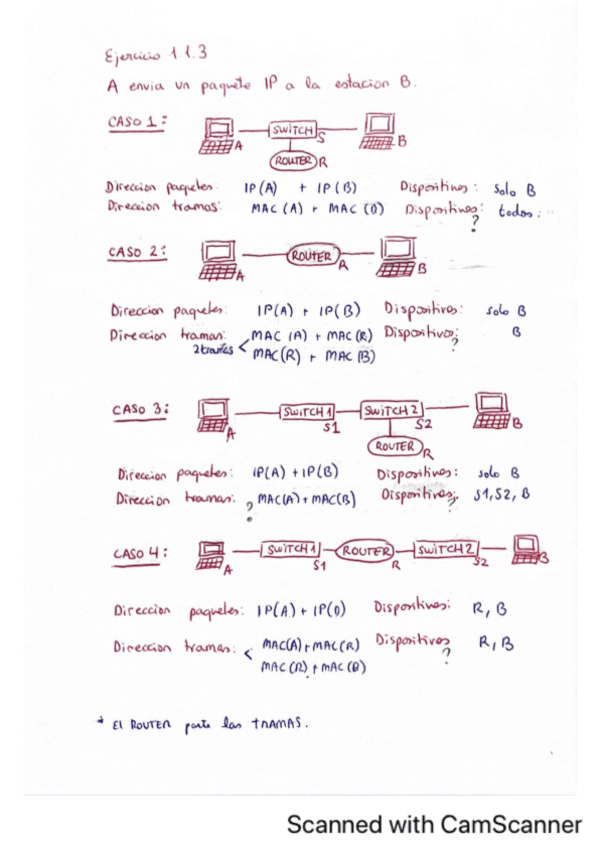 Ejercicio 1.1.3
A envia un paquete IP a la estacion B.
CASO 1: A SWITCH S B
ROUTER R
Direccion paquetes: IP(A) + IP(B) Dispositivos: solo B
Direccion tramas: MAC (A) + MAC (B) Dispositivos: ? todos:
CASO 2: A ROUTER R B
Direccion paquetes: IP(A) + IP(B) Dispositivos: solo B
Direccion tramas: MAC (A) + MAC (R) Dispositivos: ? B
2 tramas < MAC(R) + MAC (B)
CASO 3: A SWITCH 1 S1 SWITCH 2 S2 B
ROUTER R
Direccion paquetes: IP(A) + IP(B) Dispositivos: solo B
Direccion tramas: ? MAC(A) + MAC(B) Dispositivos: ? S1, S2, B
CASO 4: A SWITCH 1 S1 ROUTER R SWITCH 2 S2 B
Direccion paquetes: IP(A) + IP(B) Dispositivos: R, B
Direccion tramas: < MAC(A) + MAC(R) Dispositivos ? R, B
MAC (R) + MAC (B)
* El ROUTER parte las TRAMAS.
Scanned with CamScanner